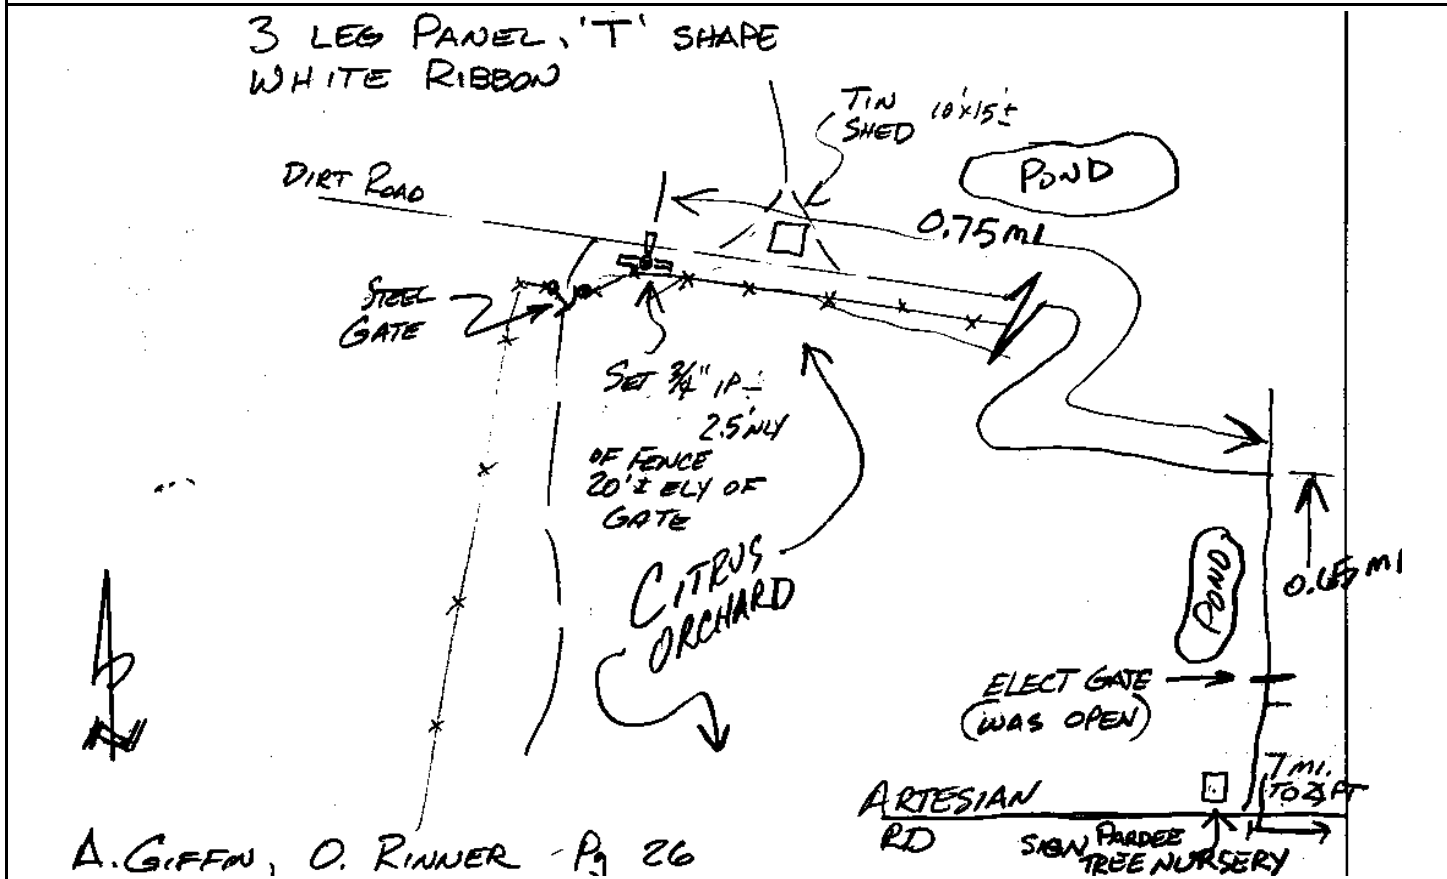 3 LEG PANEL, 'T' SHAPE
WHITE RIBBON
TIN 10'x15'±
SHED
POND
DIRT ROAD
0.75 MI
STEEL
GATE
SET 3/4" IP ±
2.5' NLY
OF FENCE
20'± ELY OF
GATE
CITRUS
ORCHARD
POND
MI
ELECT GATE
(WAS OPEN)
7 MI.
TO PT
ARTESIAN
RD
SIGN PARDEE
TREE NURSERY
N
O. RINNER - Pg 26